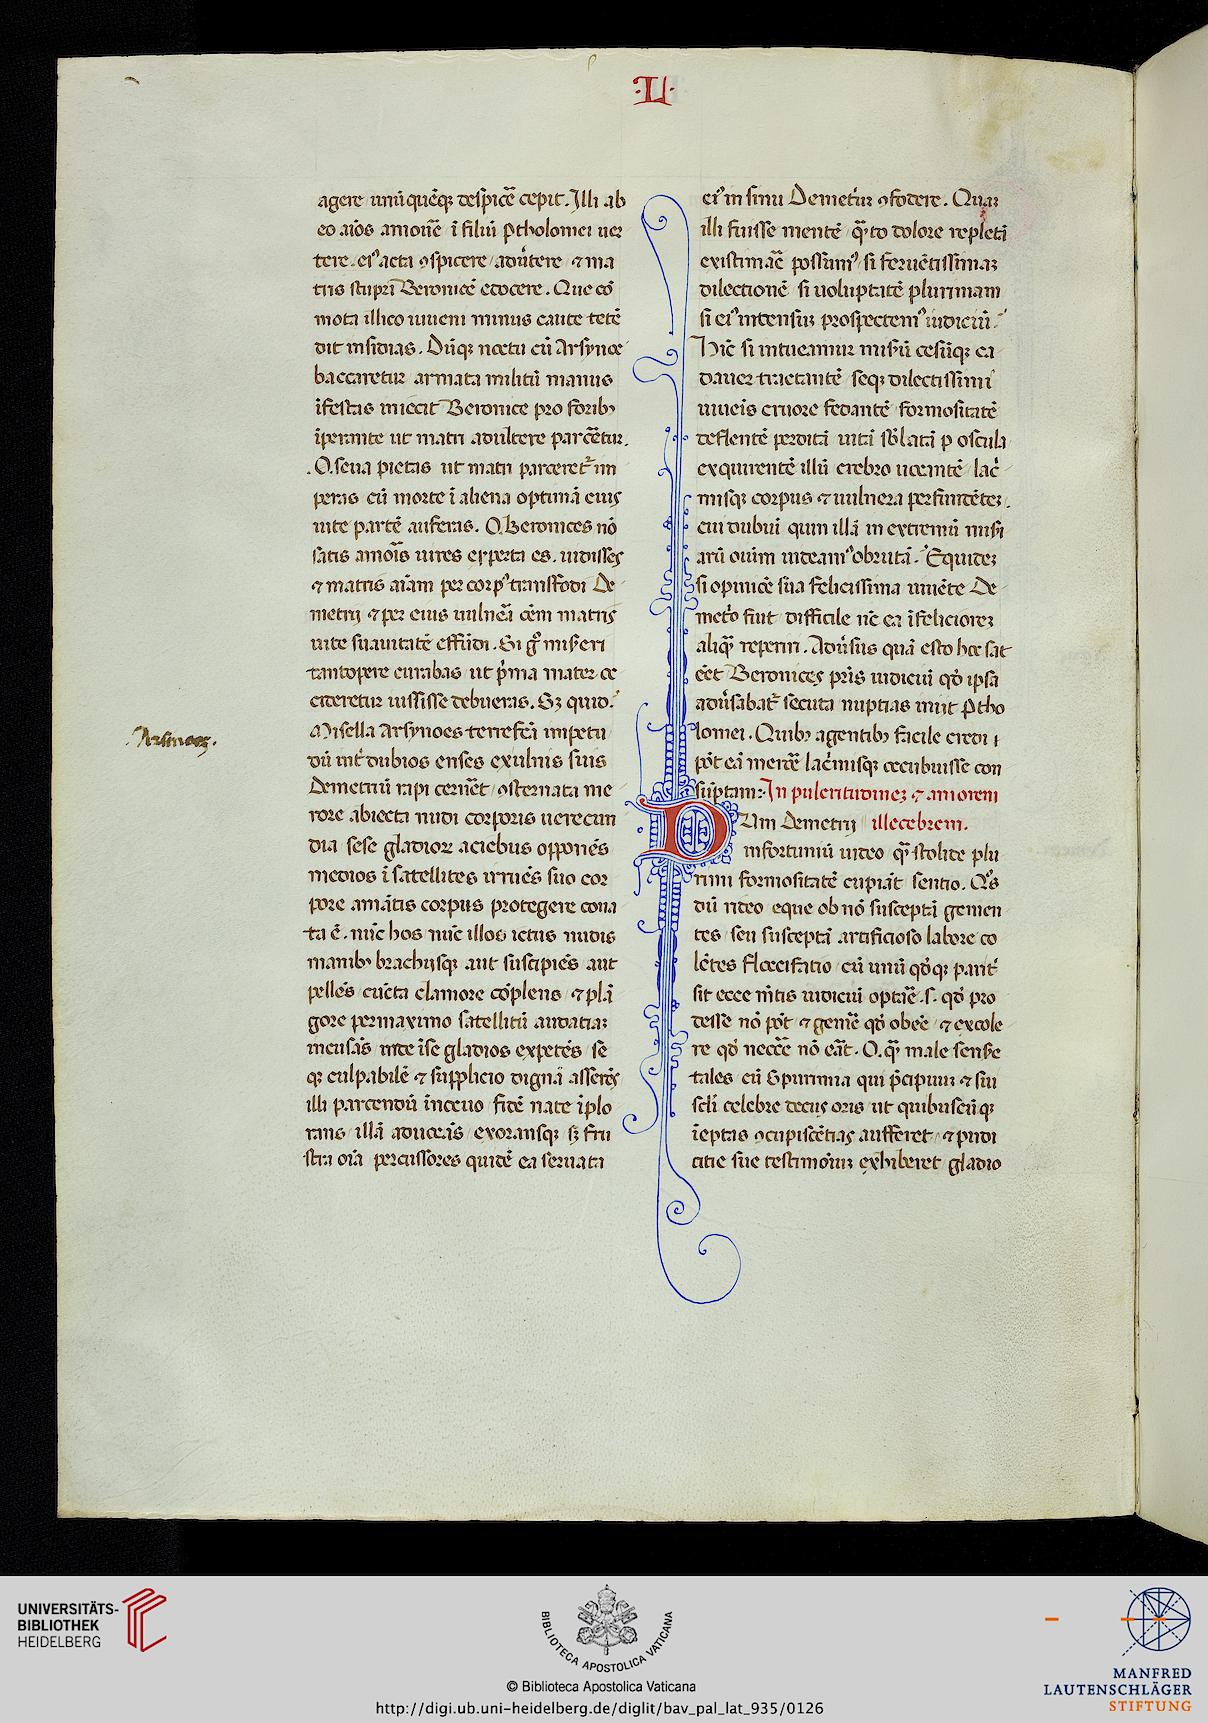 ·L·
agere unū quēq; despicē cepit. Illi ab
eo aīos amouē ī filiū ptholomei uer
tere. eiꝰ acta ꝯspicere adūtere ⁊ ma
tris stupri Beronicē edocere. Que cō
mota illico iuueni minus caute tetē
dit insidias. Dūq; noctu cū Arsynoe
baccaretur armata militū manus
īfestas iniecit Beronice pro foribꝫ
īperante ut matri adultere parcētur.
.O. seua pietas ut matri parceret᷑ im
peras cū morte ī aliena optimā eius
uite partē auferas. O. Beronices nō
satis amoīs uires experta es. uidisses
⁊ matris aīam per corpꝰ transfodi De
metrij ⁊ per eius uulnera cēm matris
uite suauitatē effūdi. Si gͦ miseri
tantopere curabas ut pͥma mater oc
cideretur iussisse debueras. Sꝫ quid.
Misella Arsynoes terrefcā impetu
dū int᷑ dubios enses exulnis suis
Demetriū rapi cernēt ꝯsternata me
rore abiecta nudi corporis uerecun
dia sese gladioꝝ aciebus opponēs
medios ī satellites irruēs suo cor
pore amātis corpus protegere cona
ta ē. nūc hos nūc illos ictus nudis
manibꝫ brachijsq; aut suscipiēs aut
pellēs cūcta clamore cōplens ⁊ plā
gore permaximo satellitū audatiaꝫ
incusās inde īse gladios expetēs se
q; culpabilē ⁊ supplicio dignā asserēs
illi parcendū inceuo fidē nate īplo
rans illā aducās exoransq; sꝫ fru
stra oīa percussores quidē ea seruata
.Arsinoes.
eiꝰ in sinu Demetriū ꝯfodere. Quaꝫ
illi fuisse mentē q̄ to dolore repletā
existimāē possumꝰ si feruētissimaꝫ
dilectionē si uoluptatē plurimam
si eiꝰ intensiꝫ prospectemꝰ iudiciū.
Hīc si intueamur misū cesūq; ca
dauer tractantē seq; dilectissimi
iuueīs cruore fedantē formositatē
deflentē perditā uitā sblatā p oscula
exquirentē illū crebro uocantē lac̄
misq; corpus ⁊ uulnera perfundēteꝫ.
cui dubiū quin illā in extremū misi
arū ouim uideamꝰ obrutā. Equideꝫ
si opinioē sūa felicissima uiuēte De
metͦo fiut difficile nc̄ ea īfelicioreꝫ
aliq̄ reperiri. Adūsus quā esto hoc sat
eēt Beronices pris iudiciū qd̄ ipsa
aduersabat᷑ secuta nuptias iniit Ptho
lomei. Quibꝫ agentibꝫ facile credi
pōt eā merōē lac̄misq; occubuisse con
sūptam: In pulcritudineꝫ ⁊ amorem
illecebrem.
DUm Demetrij
infortuniū uideo q̄ stolide plu
rimi formositatē cupiāt sentio. Qͦs
dū rideo eque ob nō susceptā gemen
tes seu susceptā artificioso labore co
lētes floccifatio cū unū qdq; parit᷑
sit ecce mētis iudiciū optāē .s. qd̄ pro
desse nō pōt ⁊ gemē qd̄ obēē ⁊ excole
re qd̄ necēē nō eāt. O. q̄ male sensere
tales cū Spurinna qui pc̄ipuuꝫ ⁊ sui
scl̄i celebre decus oris ut quibuscūq;
īeptas ꝯcupiscētias aufferet ⁊ pudi
citie sue testimoniū exhiberet gladio
UNIVERSITÄTS-
BIBLIOTHEK
HEIDELBERG
BIBLIOTECA APOSTOLICA VATICANA
© Biblioteca Apostolica Vaticana
http://digi.ub.uni-heidelberg.de/diglit/bav_pal_lat_935/0126
MANFRED
LAUTENSCHLÄGER
STIFTUNG